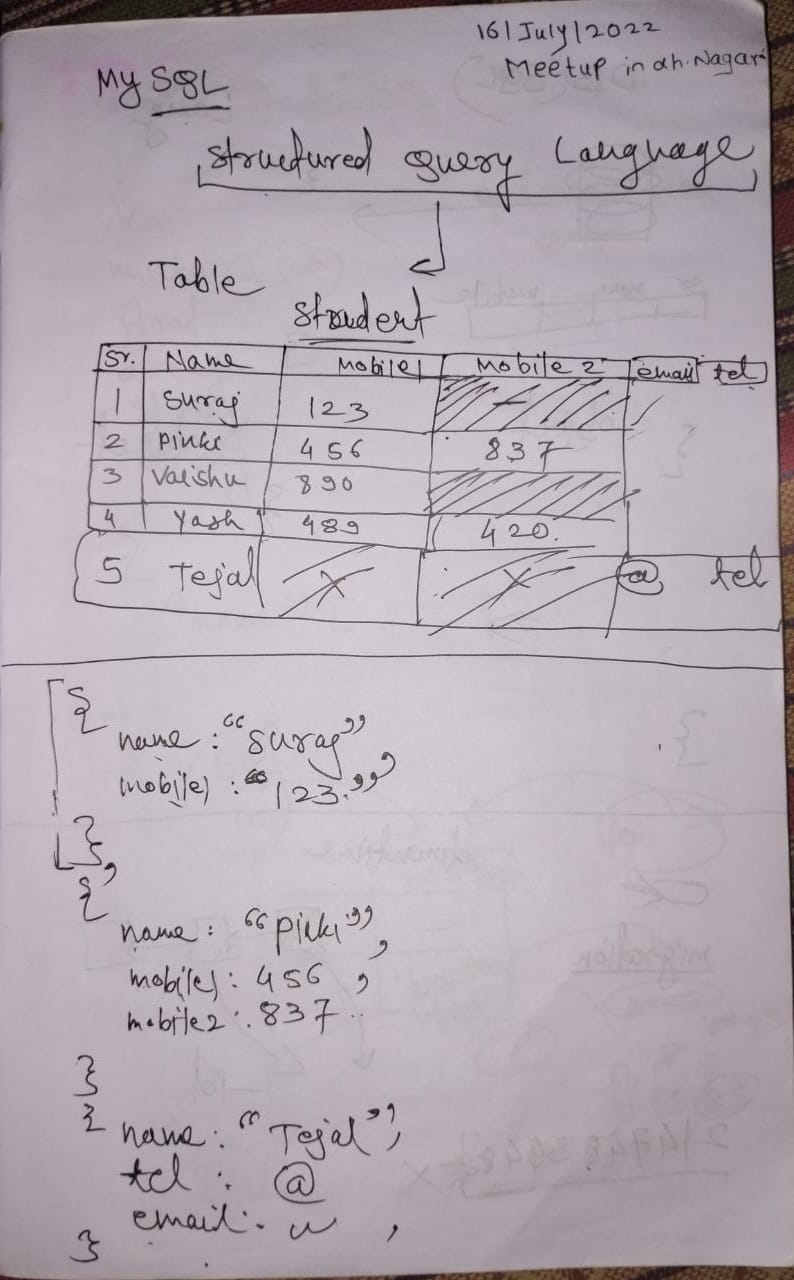 16/July/2022
Meetup in ah.Nagar
My SQL
Structured query Language
Table
student
Sr. Name Mobile1 Mobile 2 email tel
1 Suraj 123 -
2 Pinki 456 837
3 Vaishu 890
4 Yash 489 420.
5 Tejal X X @ tel
[{
name : "suraj",
mobile1 : "123."
},
{
name : "pinki",
mobile1 : 456 ,
mobile2 : 837
}
{ name : "Tejal",
tel : @
email : ,
}